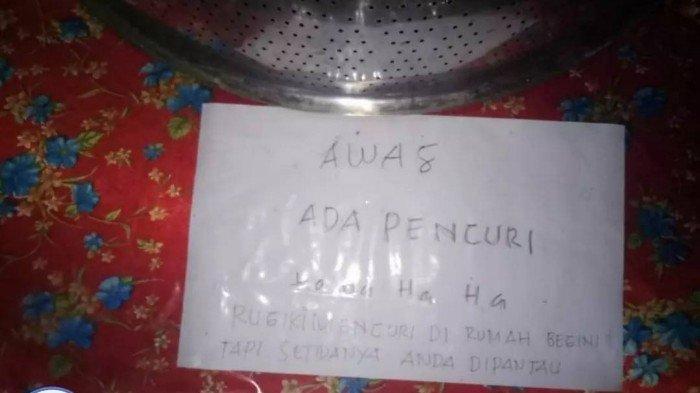 AWAS
ADA PENCURI
Ha Ha
RUGIKI MENCURI DI RUMAH BEGINI
TAPI SETIDANYA ANDA DIPANTAU